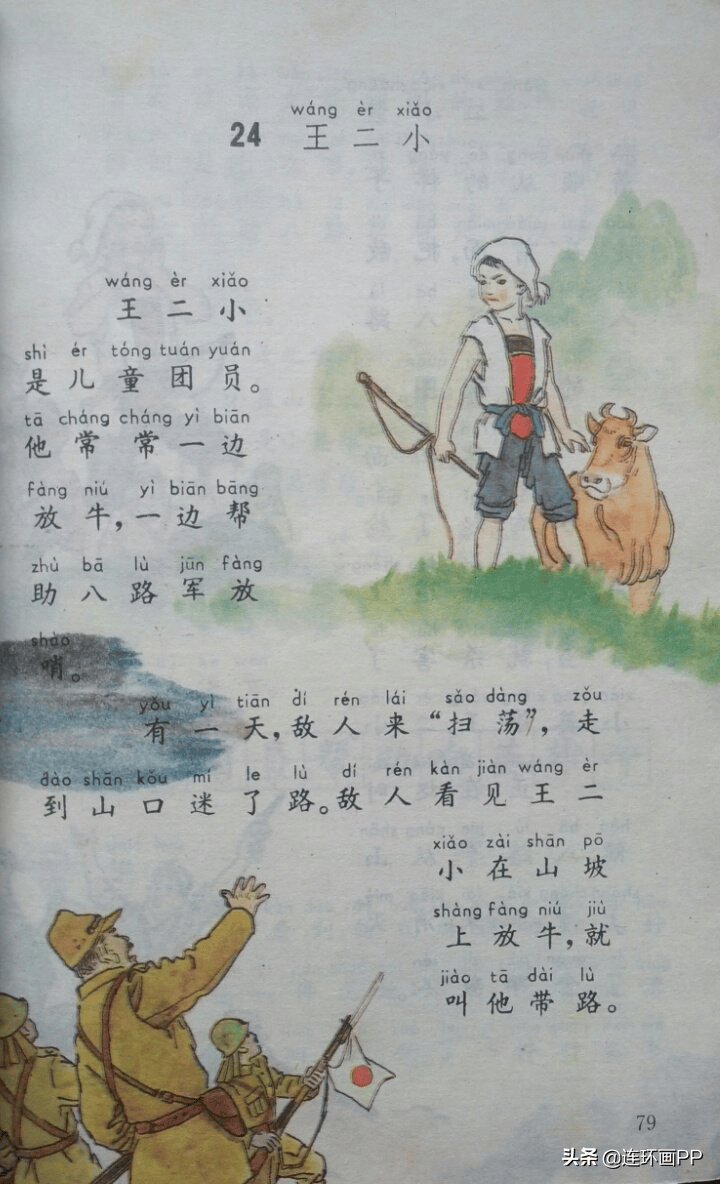 wáng èr xiǎo
24 王二小
wáng èr xiǎo
王二小
shì ér tóng tuán yuán
是儿童团员。
tā cháng cháng yì biān
他常常一边
fàng niú yì biān bāng
放牛，一边帮
zhù bā lù jūn fàng
助八路军放
shào
哨。
yǒu yì tiān dí rén lái sǎo dàng zǒu
有一天，敌人来“扫荡”，走
dào shān kǒu mí le lù dí rén kàn jiàn wáng èr
到山口迷了路。敌人看见王二
xiǎo zài shān pō
小在山坡
shàng fàng niú jiù
上放牛，就
jiào tā dài lù
叫他带路。
79
头条 @连环画PP